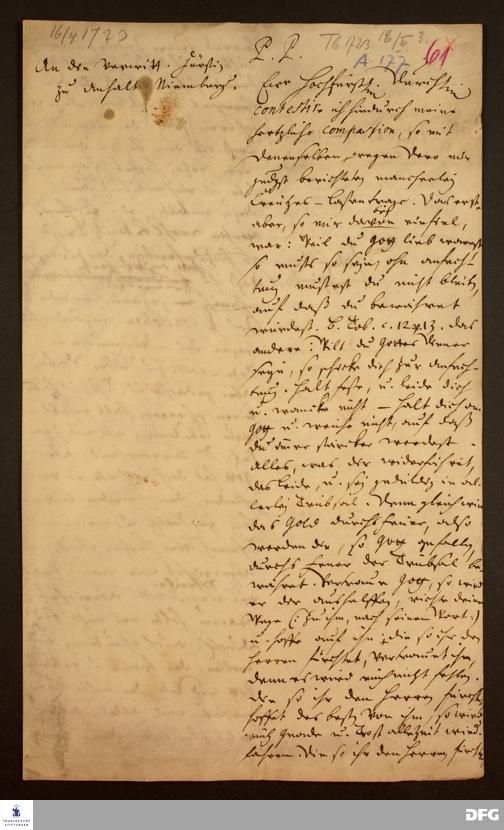 16/4 1723
An den Verwitt. Fürstin
zu Anhalt Nienburg.
P. P.
TG 1723 18/IV 3.
A 177
61
Ew. Hochfürstl. Durchl.
contestire ich hiedurch meine
hertzliche compassion, so mit
Denenselben wegen Dero mir
jüngst berichteten mancherley
Creutzes-Lasten trage. Das erste
aber, so mir davon einfiel,
war: Weil du Gott lieb warest
so musts so seyn, ohn anfech-
tung mustest du nicht bleiben,
auf daß du bewähret
würdest. B. Tob. c. 12 v. 13. Das
andere: Wilt du Gottes Diener
seyn, so schicke dich zur anfech-
tung. Halt feste, u. leide dich
u. wancke nicht — halt dich an
Gott u. weiche nicht, auf daß
du immer stärcker werdest.
Alles, was dir widerfähret,
das leide, u. sey gedultig in al-
lerley Trübsal. Denn gleich wie
das Gold durchs feuer, also
werden die, so Gott gefallen,
durchs feuer der Trübsal be-
währet. Vertraue Gott, so wird
er dir aushelffen, richte deine
Wege (: zu ihm, nach seinem Wort :)
u. hoffe auf ihn. Die so ihr den
Herren fürchtet, vertrauet ihm,
denn es wird euch nicht fehlen.
Die so ihr den Herren fürchtet
hoffet des besten von ihm, so wird
euch Gnade u. Trost allezeit wieder-
fahren. Die so ihr den Herren fürchtet
FRANCKESCHE STIFTUNGEN
DFG